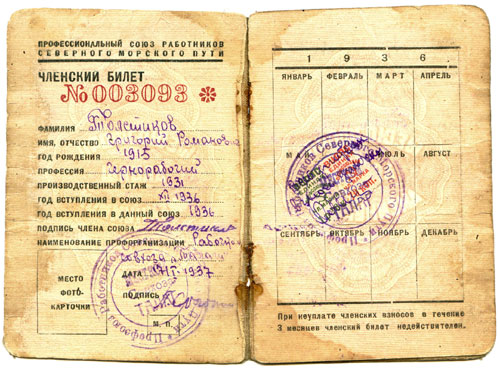 ПРОФЕССИОНАЛЬНЫЙ СОЮЗ РАБОТНИКОВ
СЕВЕРНОГО МОРСКОГО ПУТИ
ЧЛЕНСКИЙ БИЛЕТ
№ 003093 *
ФАМИЛИЯ Толстиков
ИМЯ, ОТЧЕСТВО Григорий Романов
ГОД РОЖДЕНИЯ 1915
ПРОФЕССИЯ Чернорабочий
ПРОИЗВОДСТВЕННЫЙ СТАЖ 1931
ГОД ВСТУПЛЕНИЯ В СОЮЗ XII 1936
ГОД ВСТУПЛЕНИЯ В ДАННЫЙ СОЮЗ 1936
ПОДПИСЬ ЧЛЕНА СОЮЗА
НАИМЕНОВАНИЕ ПРОФОРГАНИЗАЦИИ
ДАТА 1937
МЕСТО
ФОТО-
КАРТОЧКИ
ПОДПИСЬ
М. П.
1 9 3 6
ЯНВАРЬ ФЕВРАЛЬ МАРТ АПРЕЛЬ
МАЙ ИЮЛЬ АВГУСТ
СЕНТЯБРЬ ОКТЯБРЬ НОЯБРЬ ДЕКАБРЬ
При неуплате членских взносов в течение
3 месяцев членский билет недействителен.